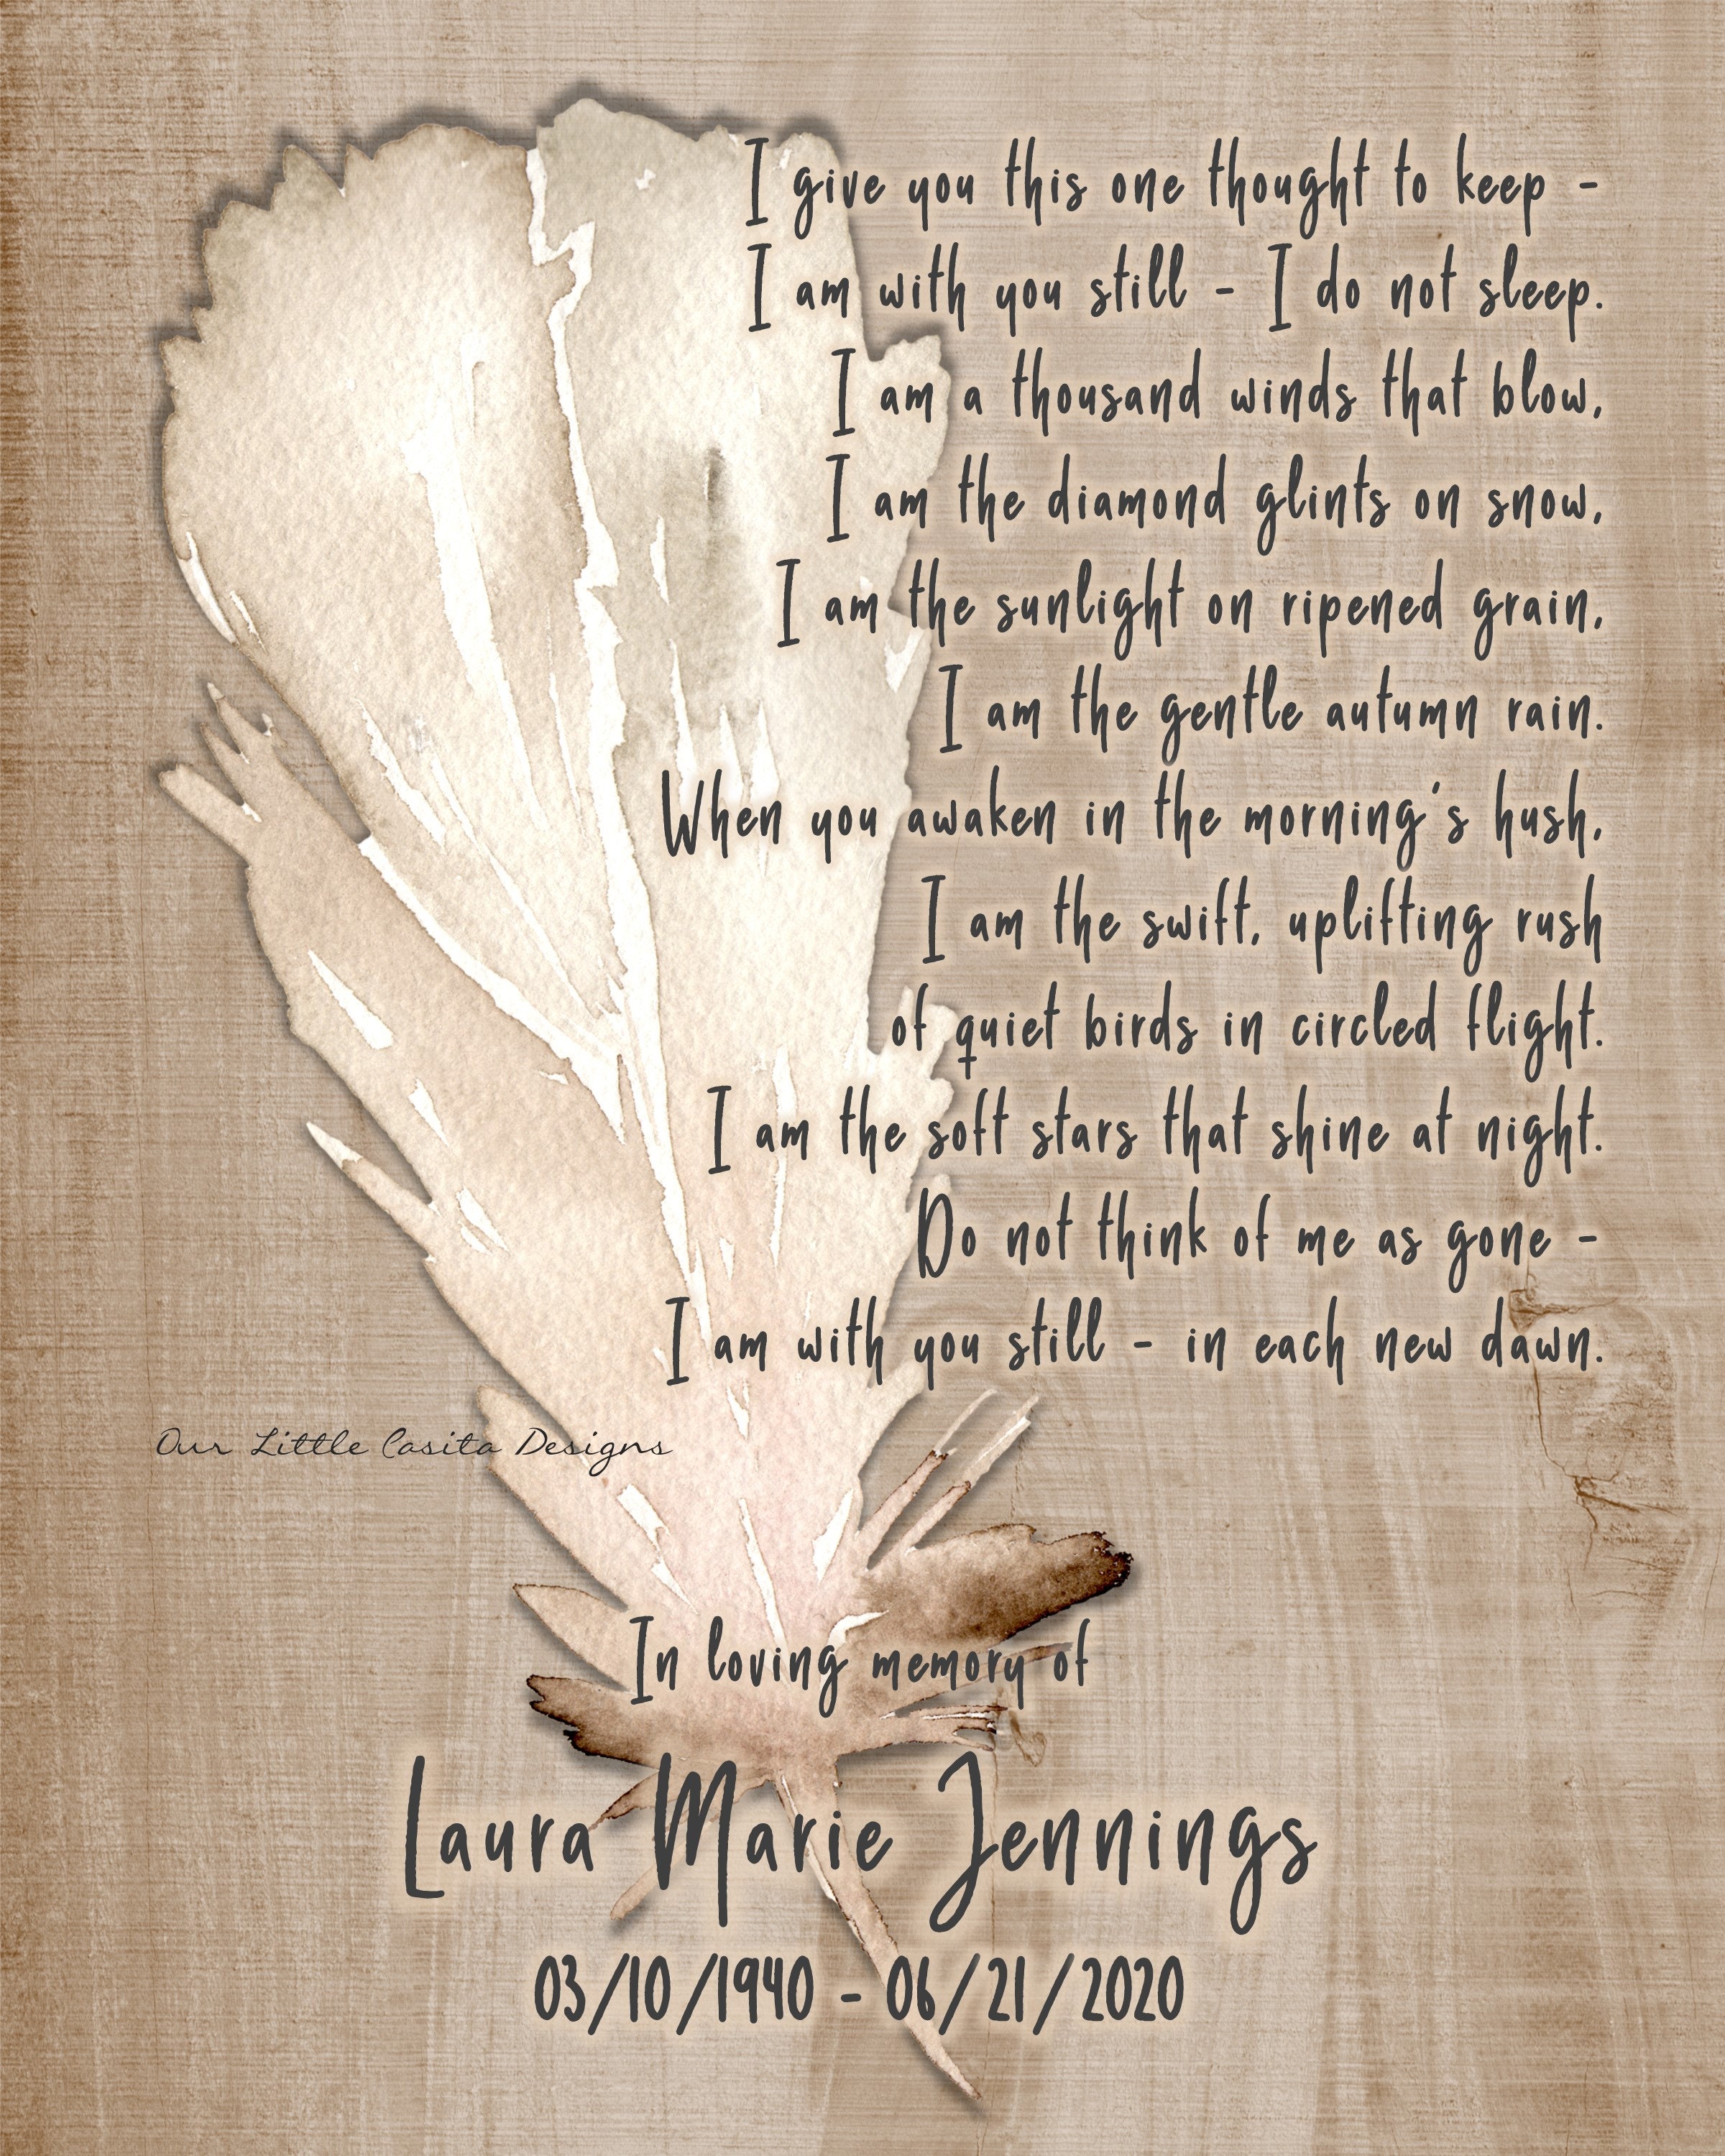 I give you this one thought to keep -
I am with you still - I do not sleep.
I am a thousand winds that blow,
I am the diamond glints on snow,
I am the sunlight on ripened grain,
I am the gentle autumn rain.
When you awaken in the morning's hush,
I am the swift, uplifting rush
of quiet birds in circled flight.
I am the soft stars that shine at night.
Do not think of me as gone -
I am with you still - in each new dawn.
Our Little Casita Designs
In loving memory of
Laura Marie Jennings
03/10/1940 - 06/21/2020